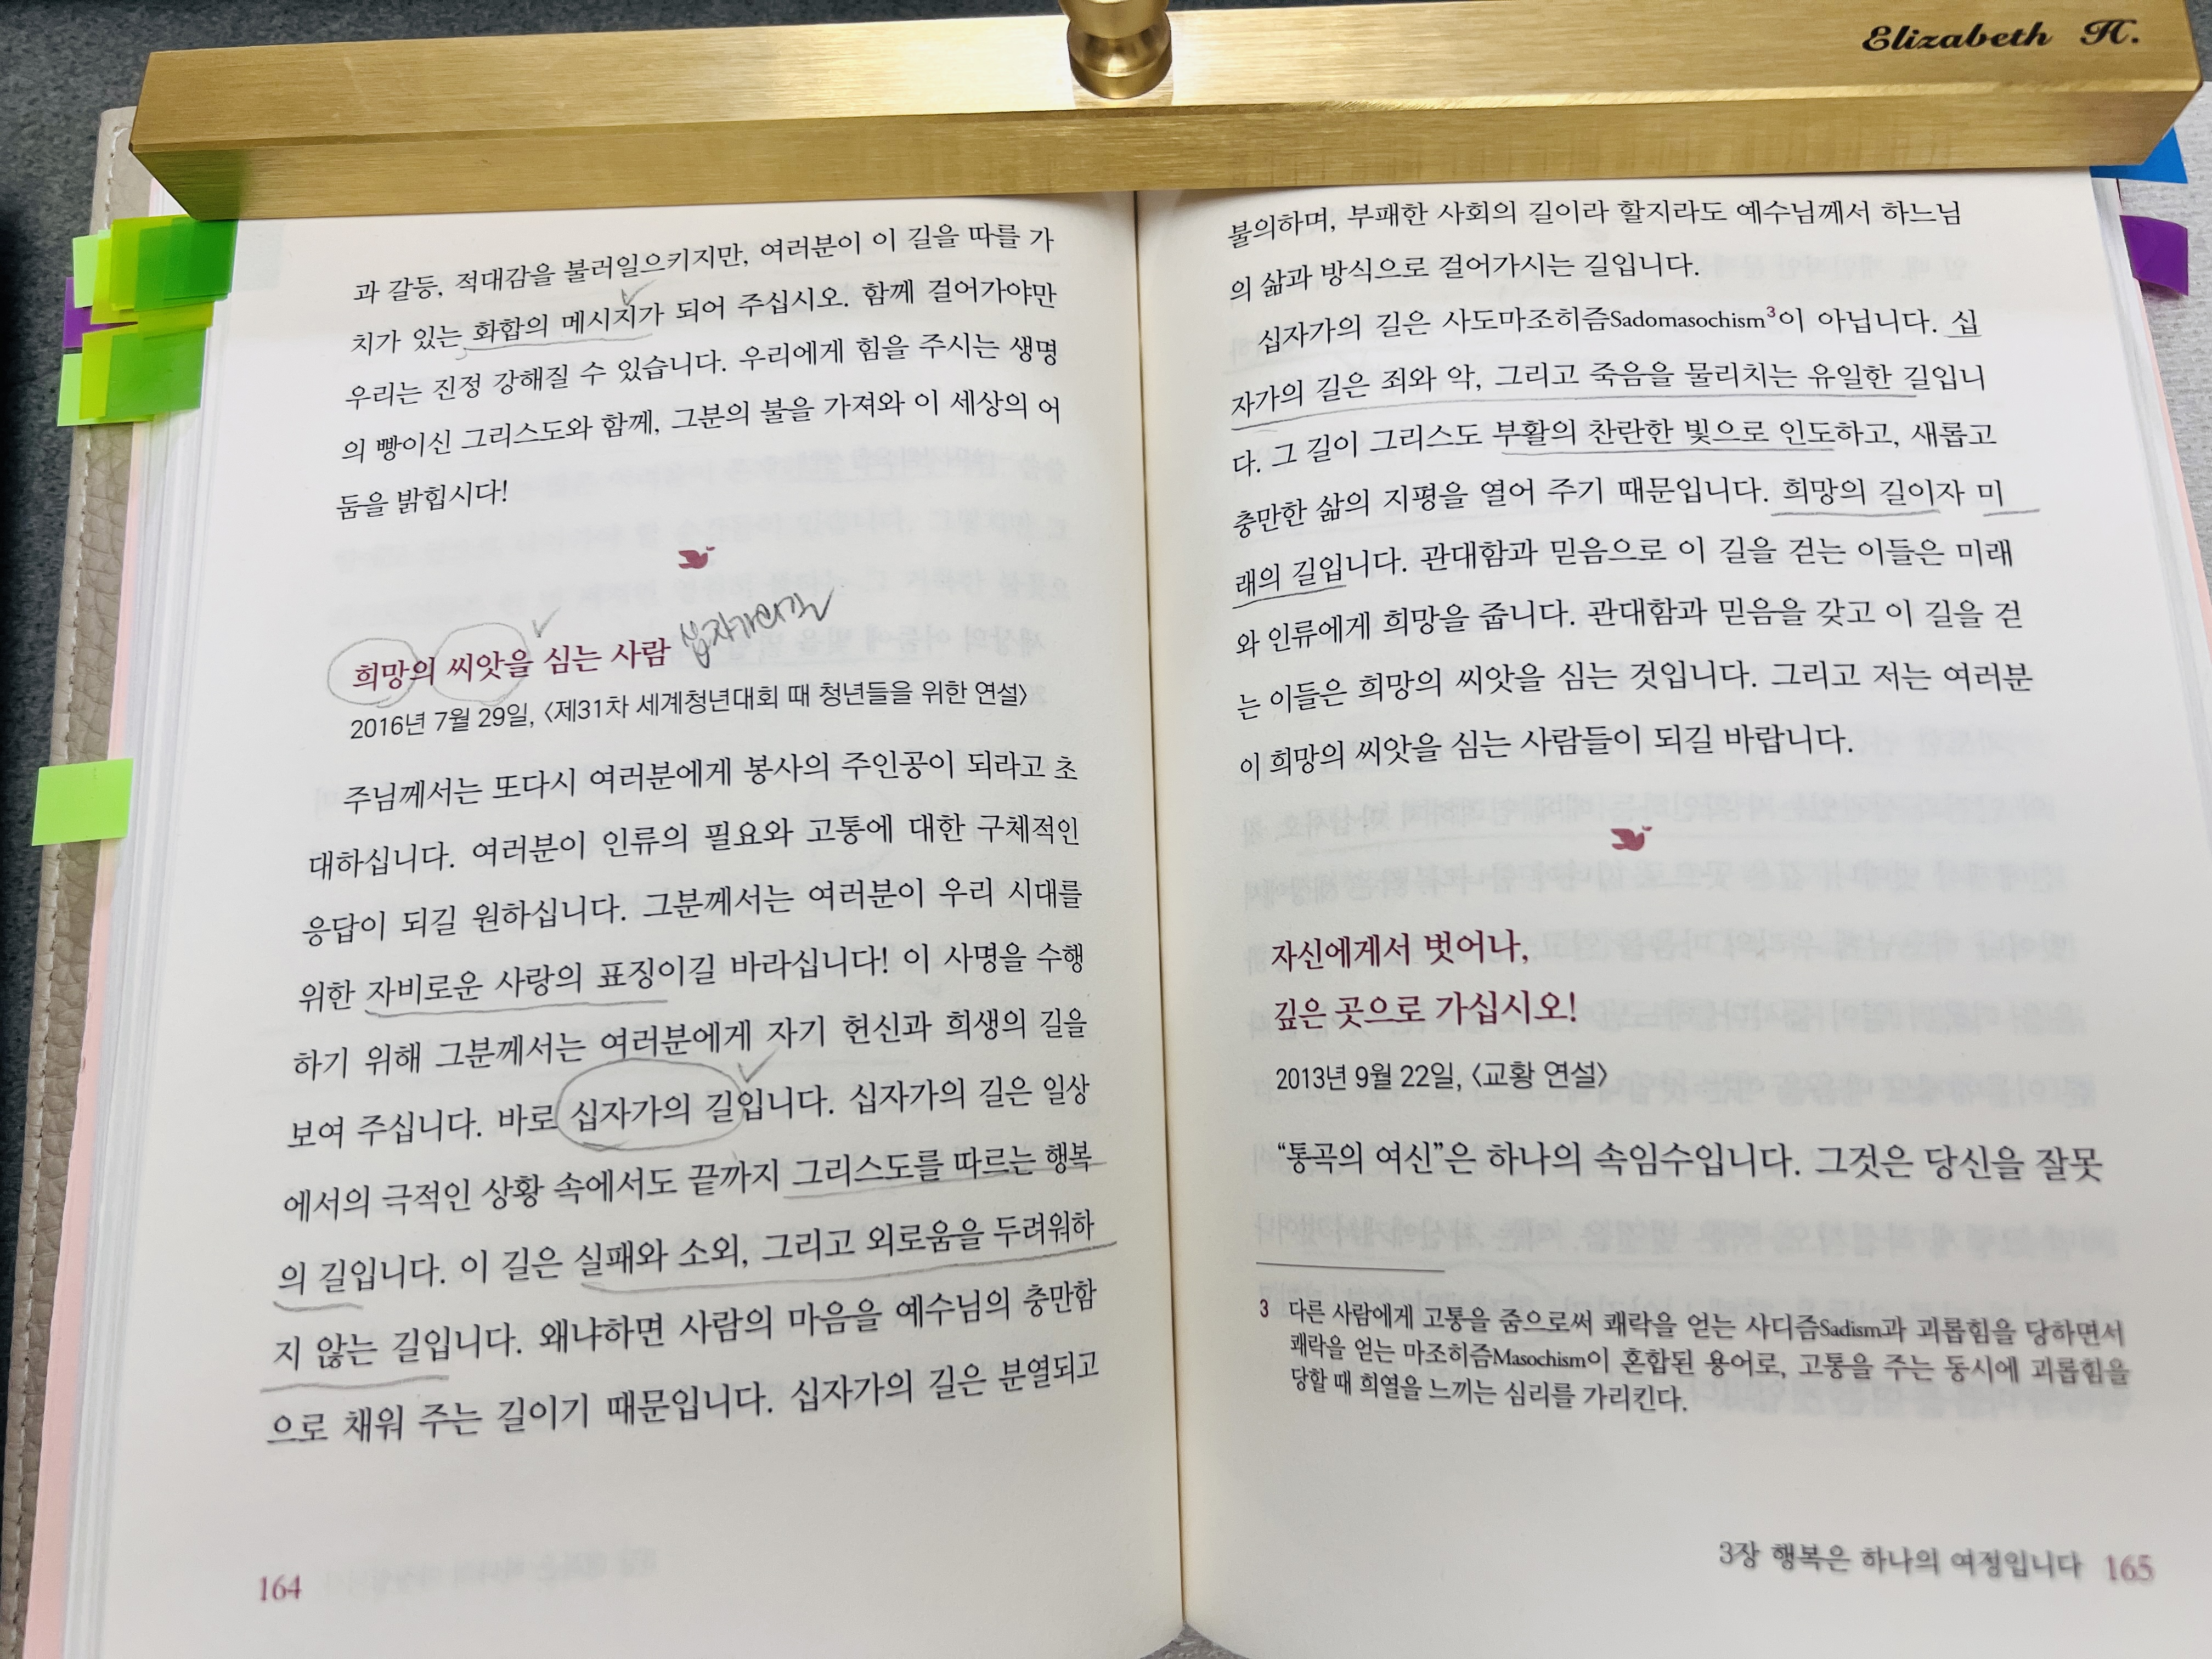 Elizabeth H.
과 갈등, 적대감을 불러일으키지만, 여러분이 이 길을 따를 가
치가 있는 화합의 메시지가 되어 주십시오. 함께 걸어가야만
우리는 진정 강해질 수 있습니다. 우리에게 힘을 주시는 생명
의 빵이신 그리스도와 함께, 그분의 불을 가져와 이 세상의 어
둠을 밝힙시다!
희망의 씨앗을 심는 사람 십자가의 길
2016년 7월 29일, 〈제31차 세계청년대회 때 청년들을 위한 연설〉
주님께서는 또다시 여러분에게 봉사의 주인공이 되라고 초
대하십니다. 여러분이 인류의 필요와 고통에 대한 구체적인
응답이 되길 원하십니다. 그분께서는 여러분이 우리 시대를
위한 자비로운 사랑의 표징이길 바라십니다! 이 사명을 수행
하기 위해 그분께서는 여러분에게 자기 헌신과 희생의 길을
보여 주십니다. 바로 십자가의 길입니다. 십자가의 길은 일상
에서의 극적인 상황 속에서도 끝까지 그리스도를 따르는 행복
의 길입니다. 이 길은 실패와 소외, 그리고 외로움을 두려워하
지 않는 길입니다. 왜냐하면 사람의 마음을 예수님의 충만함
으로 채워 주는 길이기 때문입니다. 십자가의 길은 분열되고
164
불의하며, 부패한 사회의 길이라 할지라도 예수님께서 하느님
의 삶과 방식으로 걸어가시는 길입니다.
십자가의 길은 사도마조히즘Sadomasochism3이 아닙니다. 십
자가의 길은 죄와 악, 그리고 죽음을 물리치는 유일한 길입니
다. 그 길이 그리스도 부활의 찬란한 빛으로 인도하고, 새롭고
충만한 삶의 지평을 열어 주기 때문입니다. 희망의 길이자 미
래의 길입니다. 관대함과 믿음으로 이 길을 걷는 이들은 미래
와 인류에게 희망을 줍니다. 관대함과 믿음을 갖고 이 길을 걷
는 이들은 희망의 씨앗을 심는 것입니다. 그리고 저는 여러분
이 희망의 씨앗을 심는 사람들이 되길 바랍니다.
자신에게서 벗어나,
깊은 곳으로 가십시오!
2013년 9월 22일, 〈교황 연설〉
“통곡의 여신”은 하나의 속임수입니다. 그것은 당신을 잘못
3 다른 사람에게 고통을 줌으로써 쾌락을 얻는 사디즘Sadism과 괴롭힘을 당하면서
쾌락을 얻는 마조히즘Masochism이 혼합된 용어로, 고통을 주는 동시에 괴롭힘을
당할 때 희열을 느끼는 심리를 가리킨다.
3장 행복은 하나의 여정입니다 165